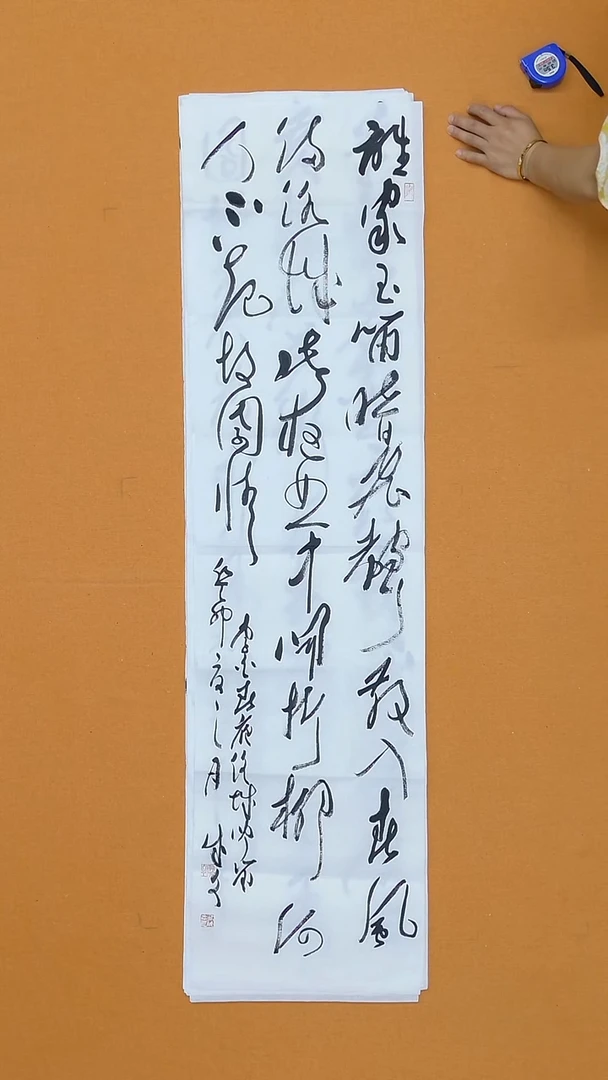 誰家玉笛暗飛聲散入春風
滿洛城此夜曲中聞折柳何
人不起故園情
李白春夜洛城聞笛
癸卯
月